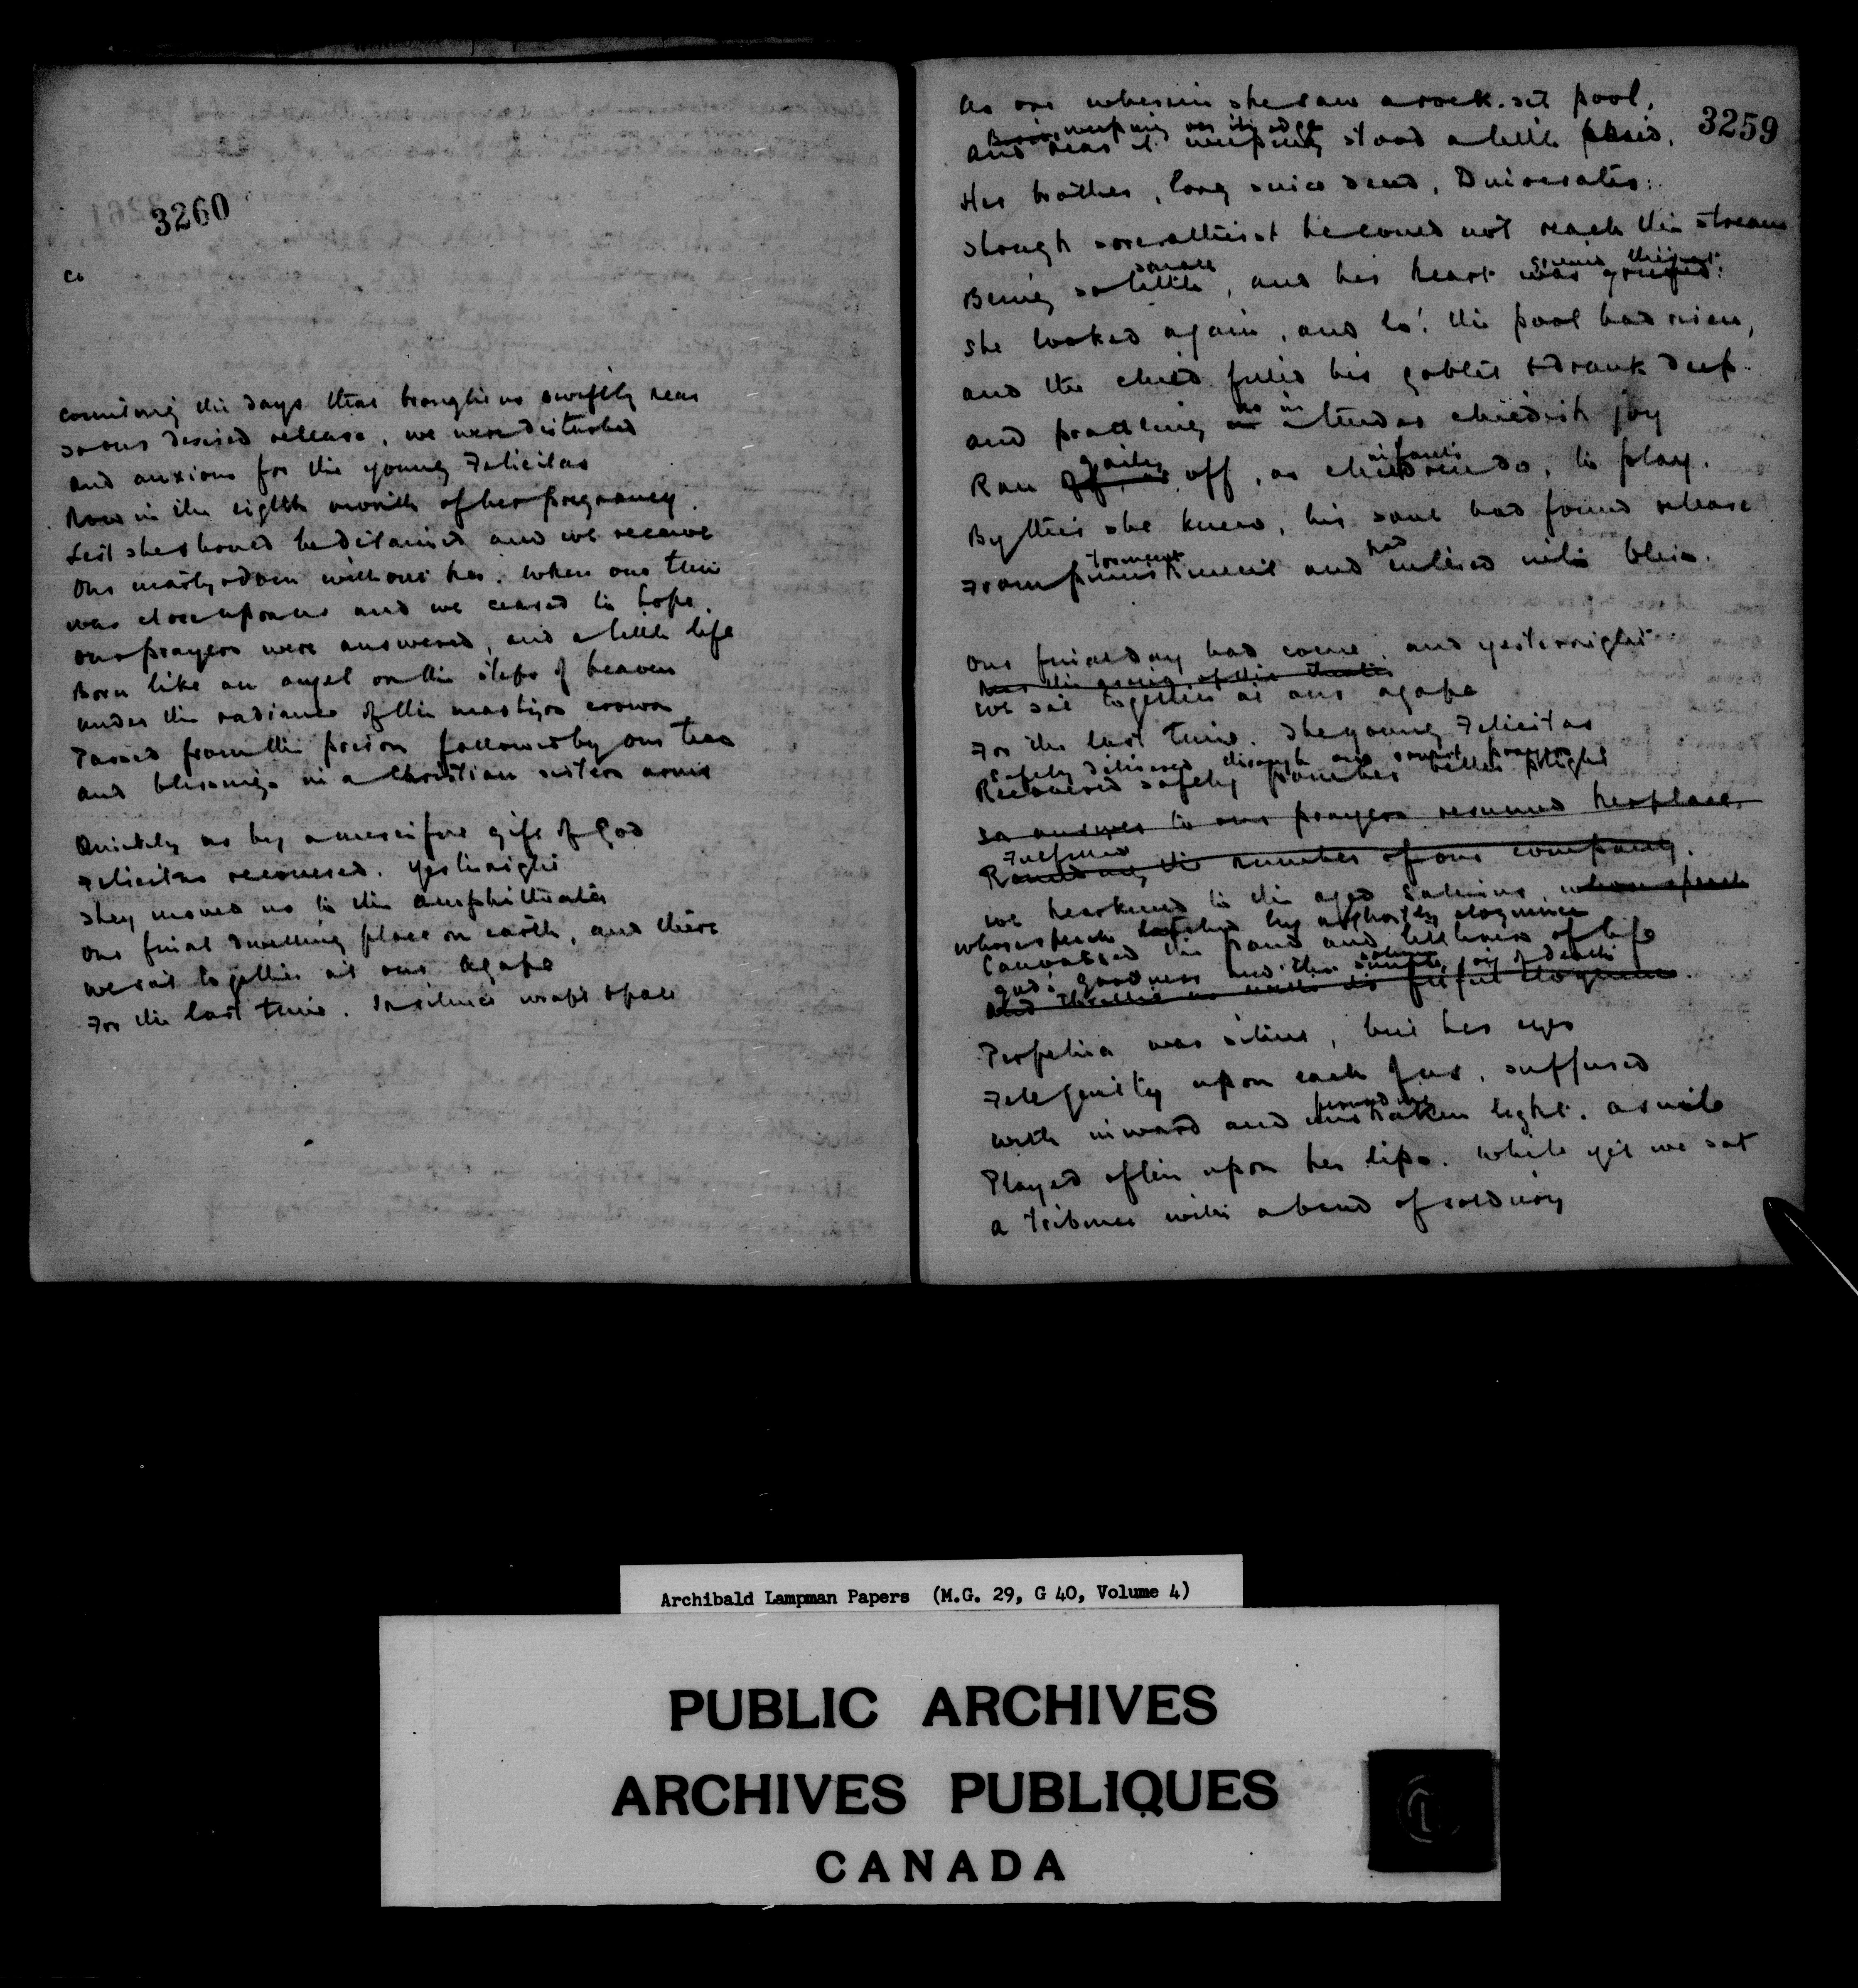 3260
Co
Counting the days that brought us swiftly near
So our desired release, we were disturbed
And anxious for the young Felicitas
Now in the eighth month of her pregnancy
Lest she should be detained and we receive
Our martyrdom without her. When our time
was close upon us and we ceased to hope,
our prayers were answered, and a little life
Born like an angel on the steps of heaven
under the radiance of the martyrs crown
Passed from the prison followed by our tears
and blessings in a Christian sisters arms
Quickly as by a merciful gift of God
Felicitas recovered. Yesternight
They moved us to the amphitheatre
Our final dwelling place on earth, and there
we sat together at our Agape
For the last time. In silence wrapt apart
3259
As one wherein she saw a rock-set pool,
weeping on its edge
And near it weeping stood a little child,
Her brother, long since dead, Dinocrates:
Though sore athirst he could not reach the stream
small grieved thereat
Being so little, and his heart was grieved:
She looked again, and lo! the pool had risen,
And the child filled his goblet & drank deep
as in
And prattling in a tender childish joy
gaily infants
Ran off, as off, as children do, to play.
By this she knew, his soul had found release
torment had
From punishment and entered into bliss.
Our final day had come, and yesternight
we sat together at our agape
For the last time. The young Felicitas
Safely delivered through our prayers
Recovered safely from her plight
In answer to our prayers resumed her place,
Fulfilled
Rounding the number of our company.
We hearkened to the aged Saturus, whose speech
whose speech by a ghostly eloquence
Canvassed the and littleness of life
God's goodness and the simple joy of death
And thrilled us with its fitful eloquence.
Perpetua was silent, but her eyes
Fell gently upon each face, suffused
With inward and unshaken light. A smile
Played often upon her lips. While yet we sat
A tribune with a band of soldiery
Archibald Lampman Papers (M.G. 29, G 40, Volume 4)
PUBLIC ARCHIVES
ARCHIVES PUBLIQUES
CANADA